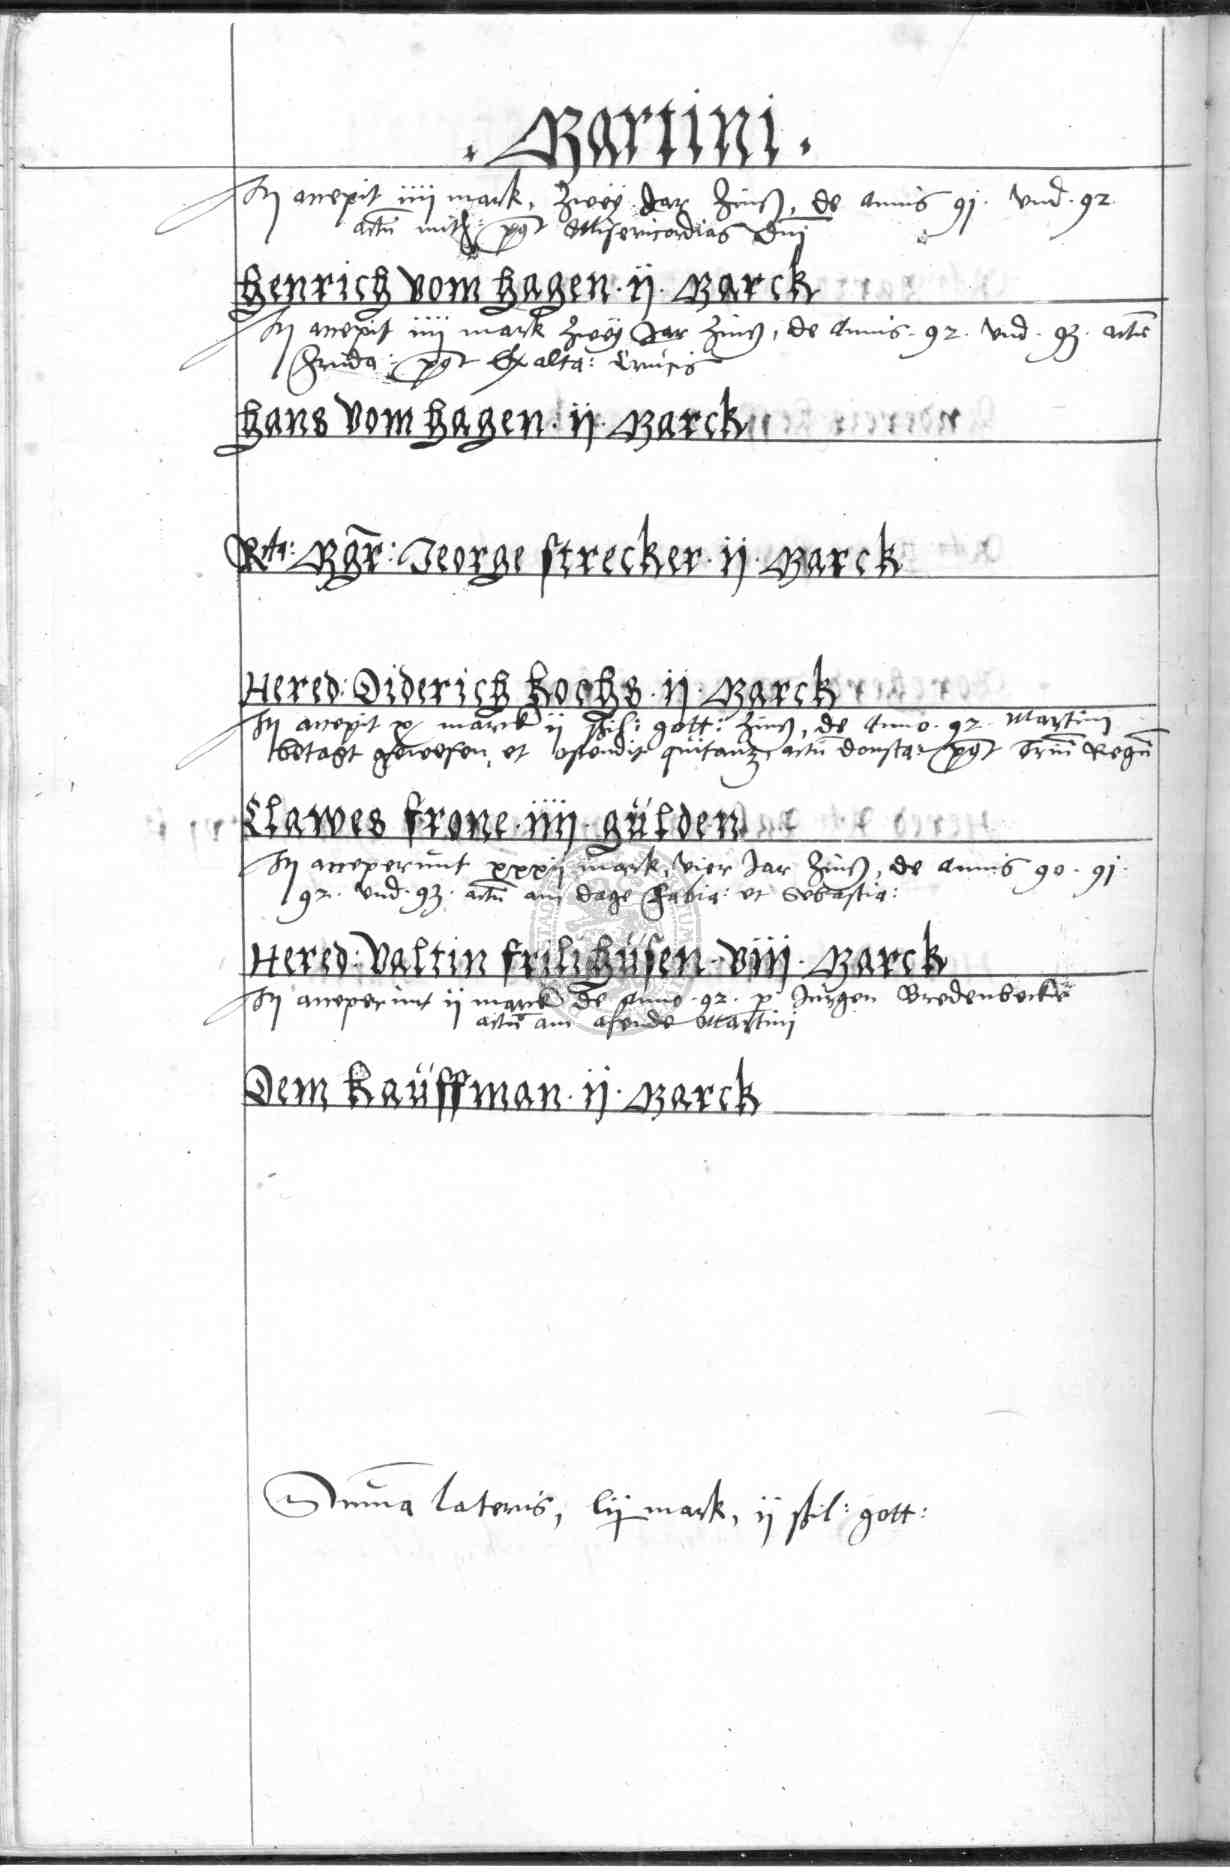 . Martini .
accepit iiij mark, zweÿ Jar Zinß, de Annis 91. vnd. 92.
actũ mitt: pꝰt Misericordias Dnĩ
Henrich vom Hagen . ij . Marck
accepit iiij mark zweÿ Jar Zinß, de Annis . 92 . vnd . 93 . actũ
Frida: pꝰt Exalta: Crucis
Hans vom Hagen . ij . Marck
Rta: Mgr̃: Jeorge Strecker . ij . Marck
Hered: Diderich Kochs . ij . Marck
accepit x marck ij ßil: gott: Zinß, de Anno . 92 . Martini
betagt gewesen, et ostendit quitantz actũ donsta: pꝰt Triũ Regũ
Clawes Frone . iiij . gülden
acceperunt xxxij mark, vier Jar Zinß, de Annis 90 . 91 .
92 . vnd . 93 . actũ am dage Fabia: et Sebastia:
Hered: Valtin Frilihüsen . viij . Marck
acceperunt ij marck de Anno . 92 . p Jürgen Bredenbecke
actũ am afende Martini
Dem Kaüffman . ij . Marck
Sum̃a lateris, lij mark, ij ßil: gott: